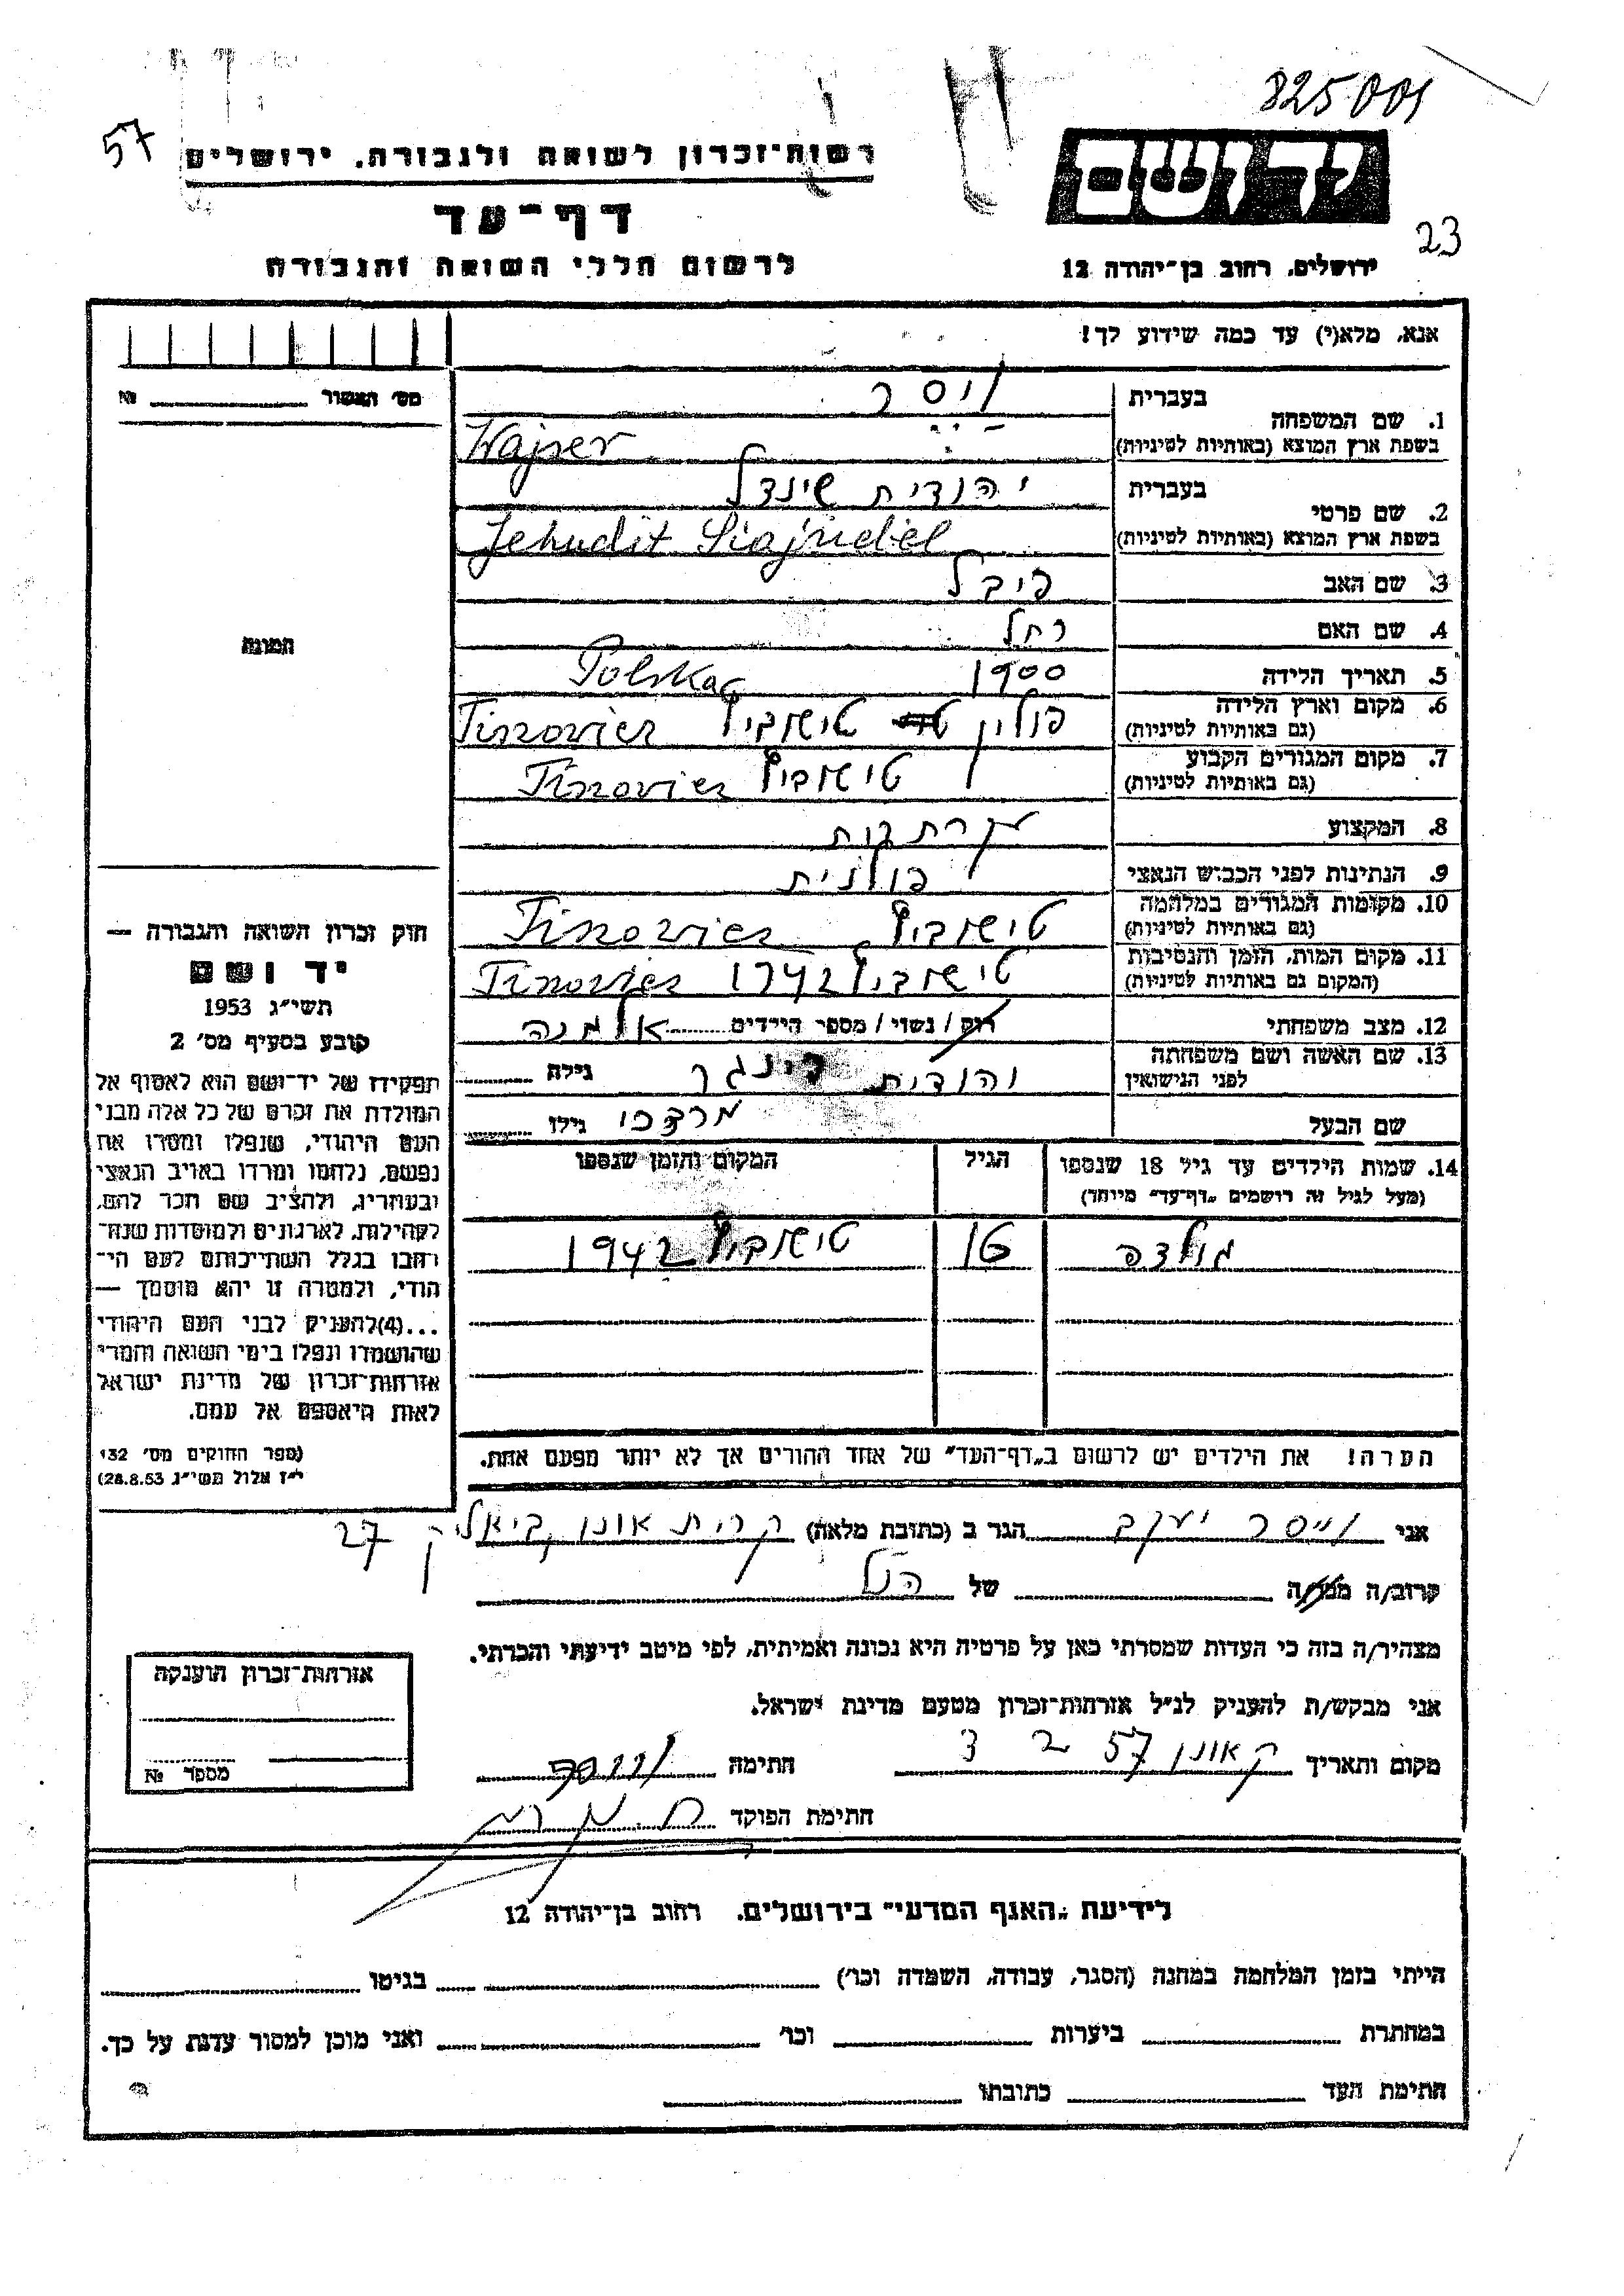 825009
57
רשות־זכרון לשואה ולגבורה. ירושלים
יד ושם
דף־עד
23
לרשום חללי השואה והגבורה
ירושלים, רחוב בן־יהודה 12
אנא, מלא(י) עד כמה שידוע לך!
מס׳ האשור № 
בעברית וייסר
1. שם המשפחה
בשפת ארץ המוצא (באותיות לטיניות) Wajser
בעברית יהודית שינדל
2. שם פרטי
בשפת ארץ המוצא (באותיות לטיניות) Jehudit
3. שם האב פיבל
4. שם האם רחל
5. תאריך הלידה 1900 Polska
6. מקום וארץ הלידה פולין טישוביץ Tiszoviec
(גם באותיות לטיניות)
7. מקום המגורים הקבוע טישוביץ Tiszoviec
(גם באותיות לטיניות)
8. המקצוע
9. הנתינות לפני הכבוש הנאצי פולנית
10. מקומות המגורים במלחמה טישוביץ Tiszoviec
(גם באותיות לטיניות)
11. מקום המות, הזמן והנסיבות טישוביץ 1942 Tiszoviec
(המקום גם באותיות לטיניות)
12. מצב משפחתי רווק / נשוי / מספר הילדים אלמנה
13. שם האשה ושם משפחתה יהודית גילה
לפני הנישואין
שם הבעל מרדכי גילו
14. שמות הילדים עד גיל 18 שנספו הגיל המקום והזמן שנספו
(מעל לגיל זה רושמים „דף־עד״ מיוחד)
16 טישוביץ 1942
הערה! את הילדים יש לרשום ב„דף־העד״ של אחד ההורים אך לא יותר מפעם אחת.
התמונה
חוק זכרון השואה והגבורה —
יד ושם
תשי״ג 1953
קובע בסעיף מס׳ 2
תפקידו של יד־ושם הוא לאסוף אל
המולדת את זכרם של כל אלה מבני
העם היהודי, שנפלו ומסרו את
נפשם, נלחמו ומרדו באויב הנאצי
ובעוזריו, ולהציב שם וזכר להם,
לקהילות, לארגונים ולמוסדות שנח־
רבו בגלל השתייכותם לעם הי־
הודי, ולמטרה זו יהא מוסמך —
...(4)להעניק לבני העם היהודי
שהושמדו ונפלו בימי השואה והמרי
אזרחות־זכרון של מדינת ישראל
לאות היאספם אל עמם.
(ספר החוקים מס׳ 132
י״ז אלול תשי״ג 28.8.53)
אני וייסר יעקב הגר ב (כתובת מלאה) קרית אונו ביאליק 27
קרוב/ה מכר/ה של הנ״ל
מצהיר/ה בזה כי העדות שמסרתי כאן על פרטיה היא נכונה ואמיתית, לפי מיטב ידיעתי והכרתי.
אני מבקש/ת להעניק לנ״ל אזרחות־זכרון מטעם מדינת ישראל.
מקום ותאריך ק אונו 57 2 3 חתימה
חתימת הפוקד
אזרחות־זכרון הוענקה
מספר №
לידיעת „האגף המדעי״ בירושלים, רחוב בן־יהודה 12
הייתי בזמן המלחמה במחנה (הסגר, עבודה, השמדה וכו׳) בגיטו
במחתרת ביערות וכו׳ ואני מוכן למסור עדות על כך.
חתימת העד כתובתו